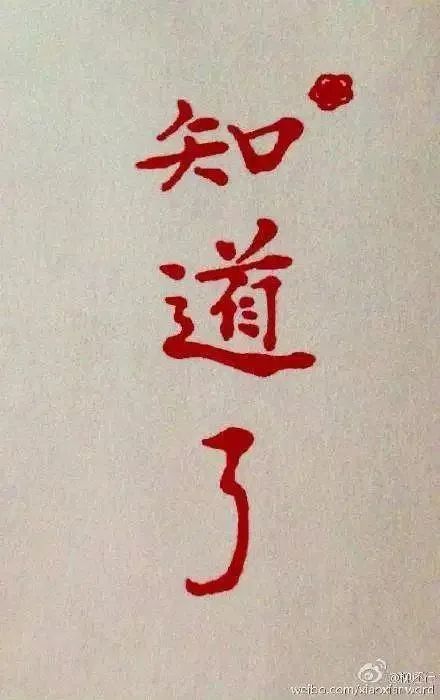 知道了
weibo.com/xiaoxianword